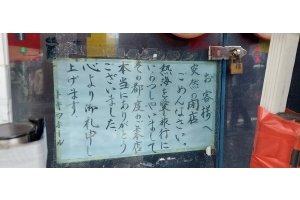 お客様へ
突然の閉店
ごめんなさい。
熱海を愛し旅行に
いらっしゃいまして
その都度のご来店
本当にありがとう
ございました。
心より御礼申し
上げます。